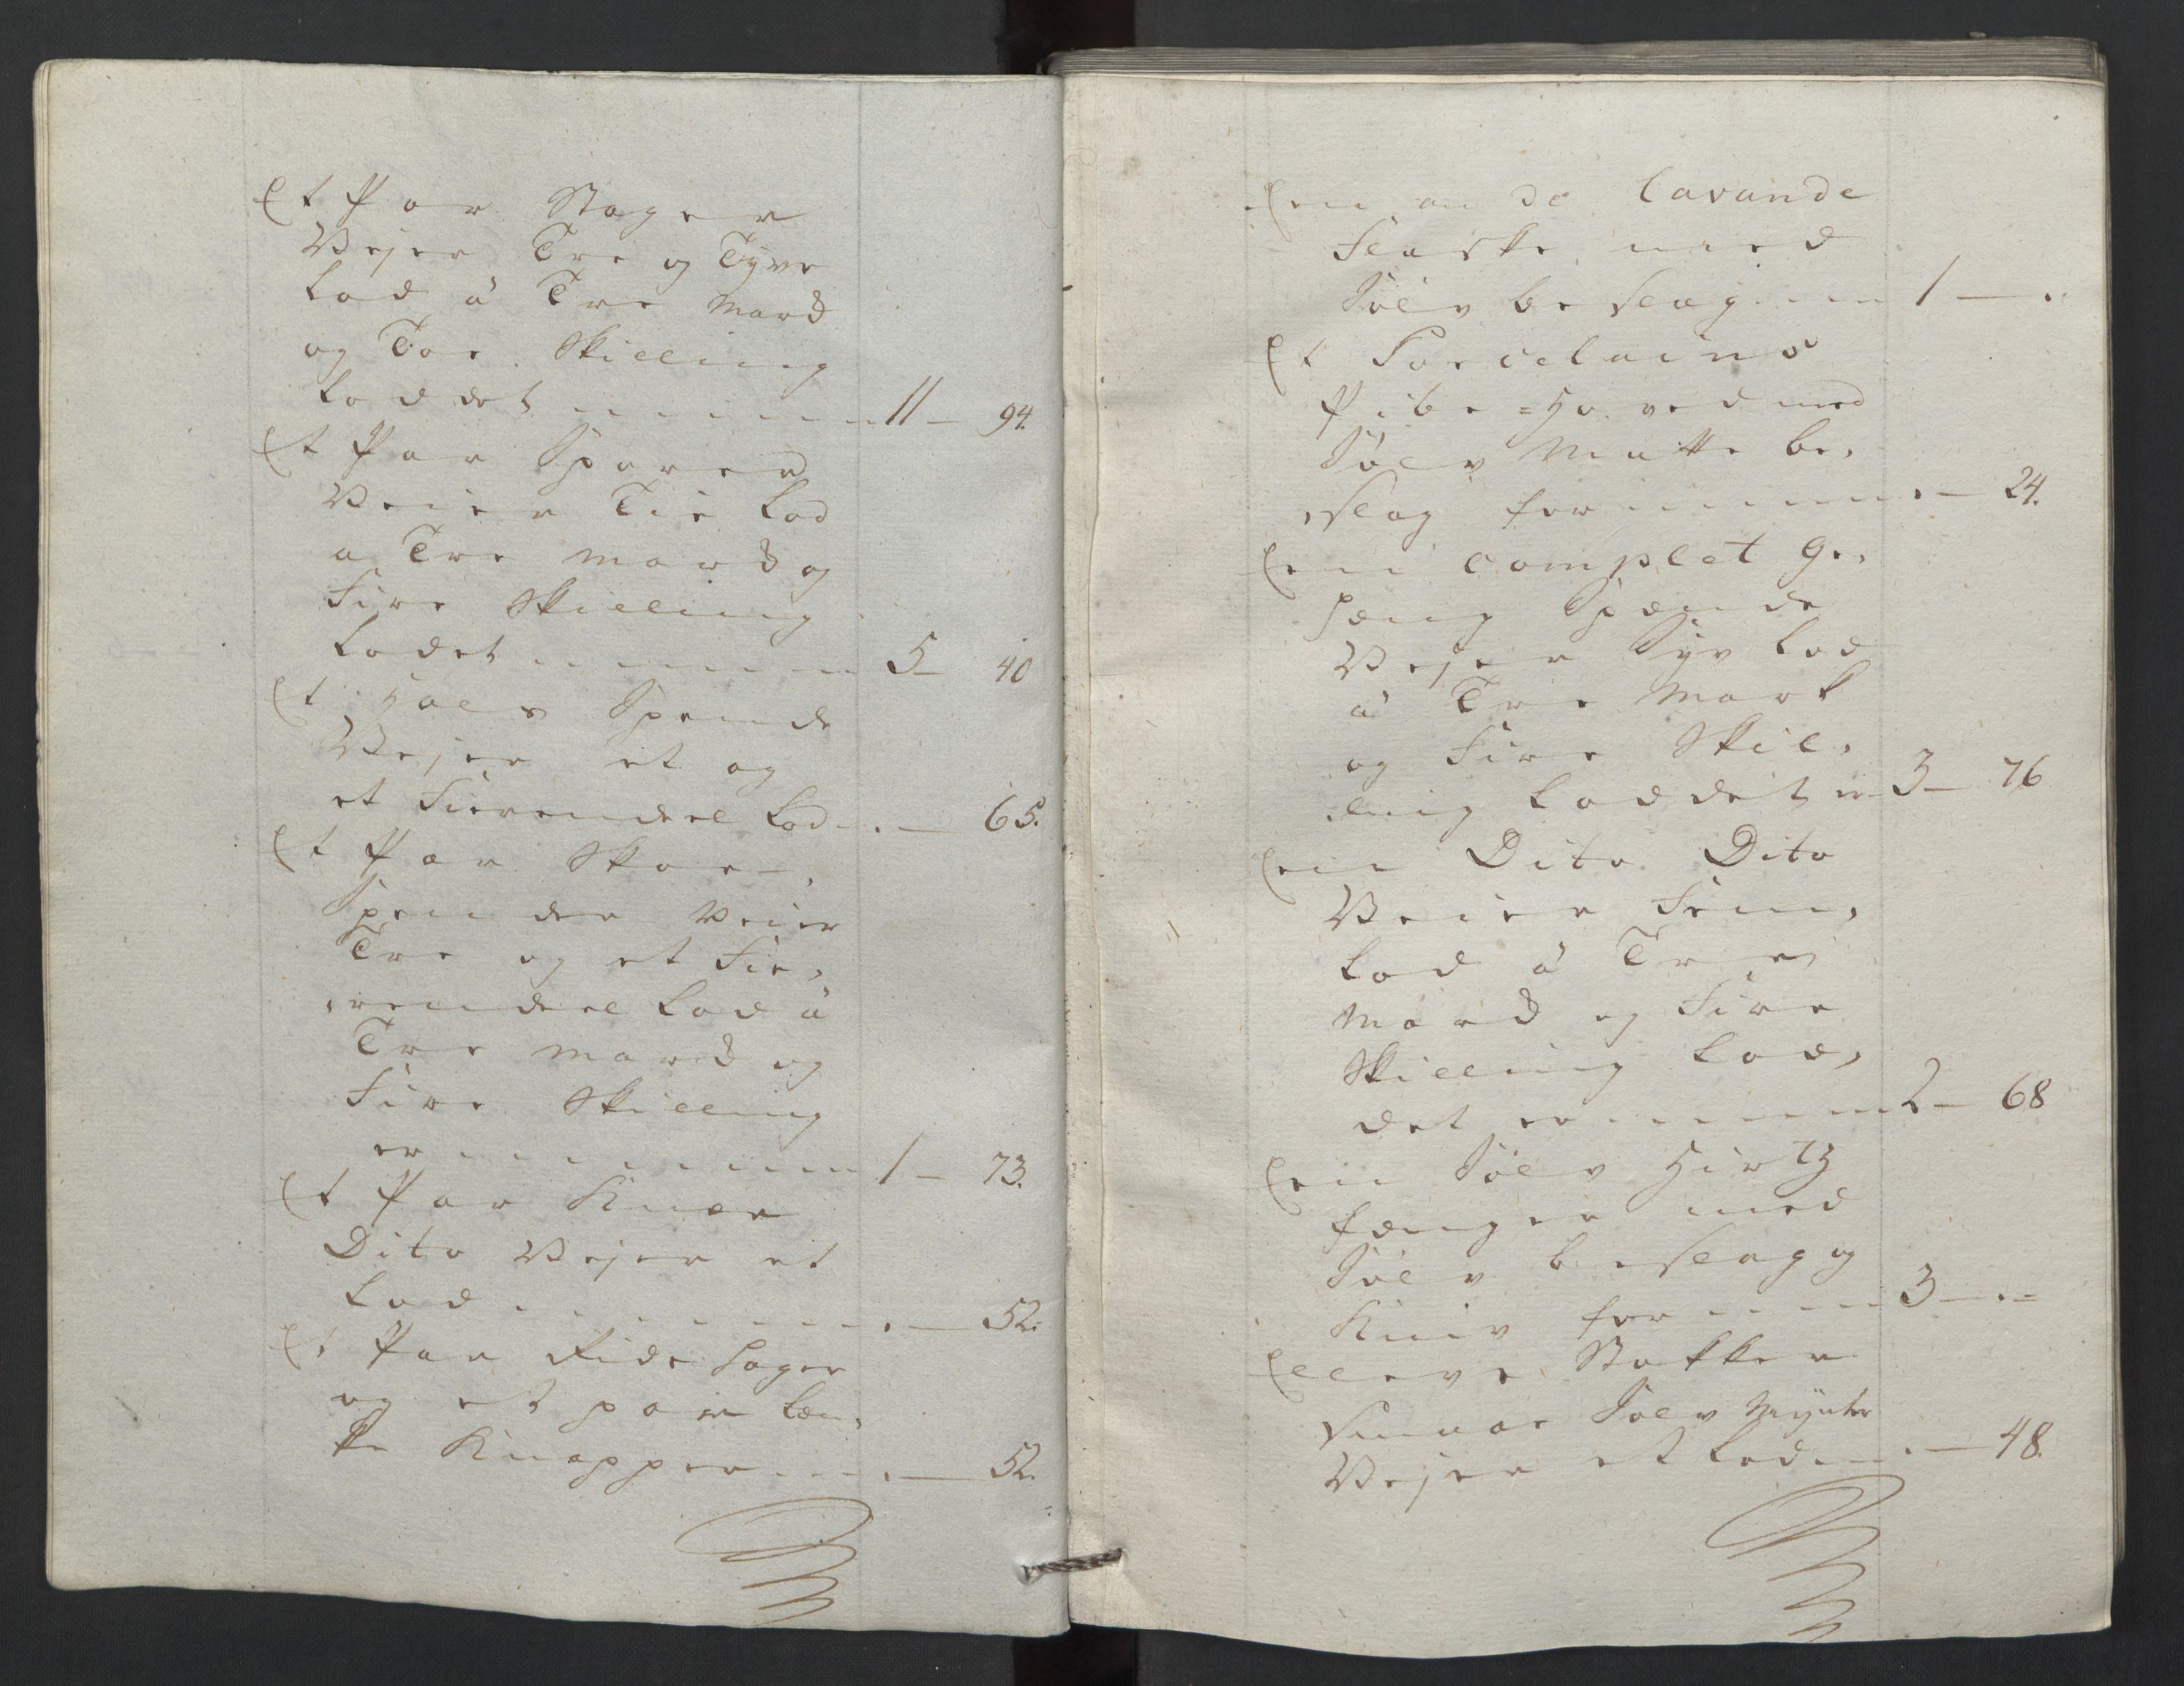 Et Par Stager
Vejer Tre og Tyve
Lod à Tre Mark
og Toe Skilling
Loddet 11 — 94.
Et Par Sporer
Veier Tie Lod
a Tre Mark og
Fire Skilling
Lodet 5 — 40
Et Hals Spende
Vejer et og
et Fierendeel Lod . — 65.
Et Par Skoe-,
Spender Veier
Tre og et Fie,
,rendeel Lod à
Tre Mark og
Fire Skilling
er 1 — 73.
Et Par Knæe
Dito Vejer et
Lod . — 52.
Et Par Ride Sager
og et par Læn,
ke Knapper . — 52.
Een au de Lavande
Flaske med
Sølv beslag 1 — .
Et Porcelains
Pibe=Hoved med
Sølv Matte be,
,slag for . — 24.
Een complet Ge,
hæng Spænde
Vejer Syv Lod
à Tre Mark
og Fire Skil,
,ling Loddet er 3 — 76
Een Dito Dito
Veier Fem,
Lod à Tre
Mark og Fire
Skilling Lod,
det er 2 — 68
Een Sølv Hirtz
fænger med
Sølv beslag og
Kniv for 3 — . =
Elleve Stykker
smaae Sølv Mynter
Vejer et Lod . — 48.